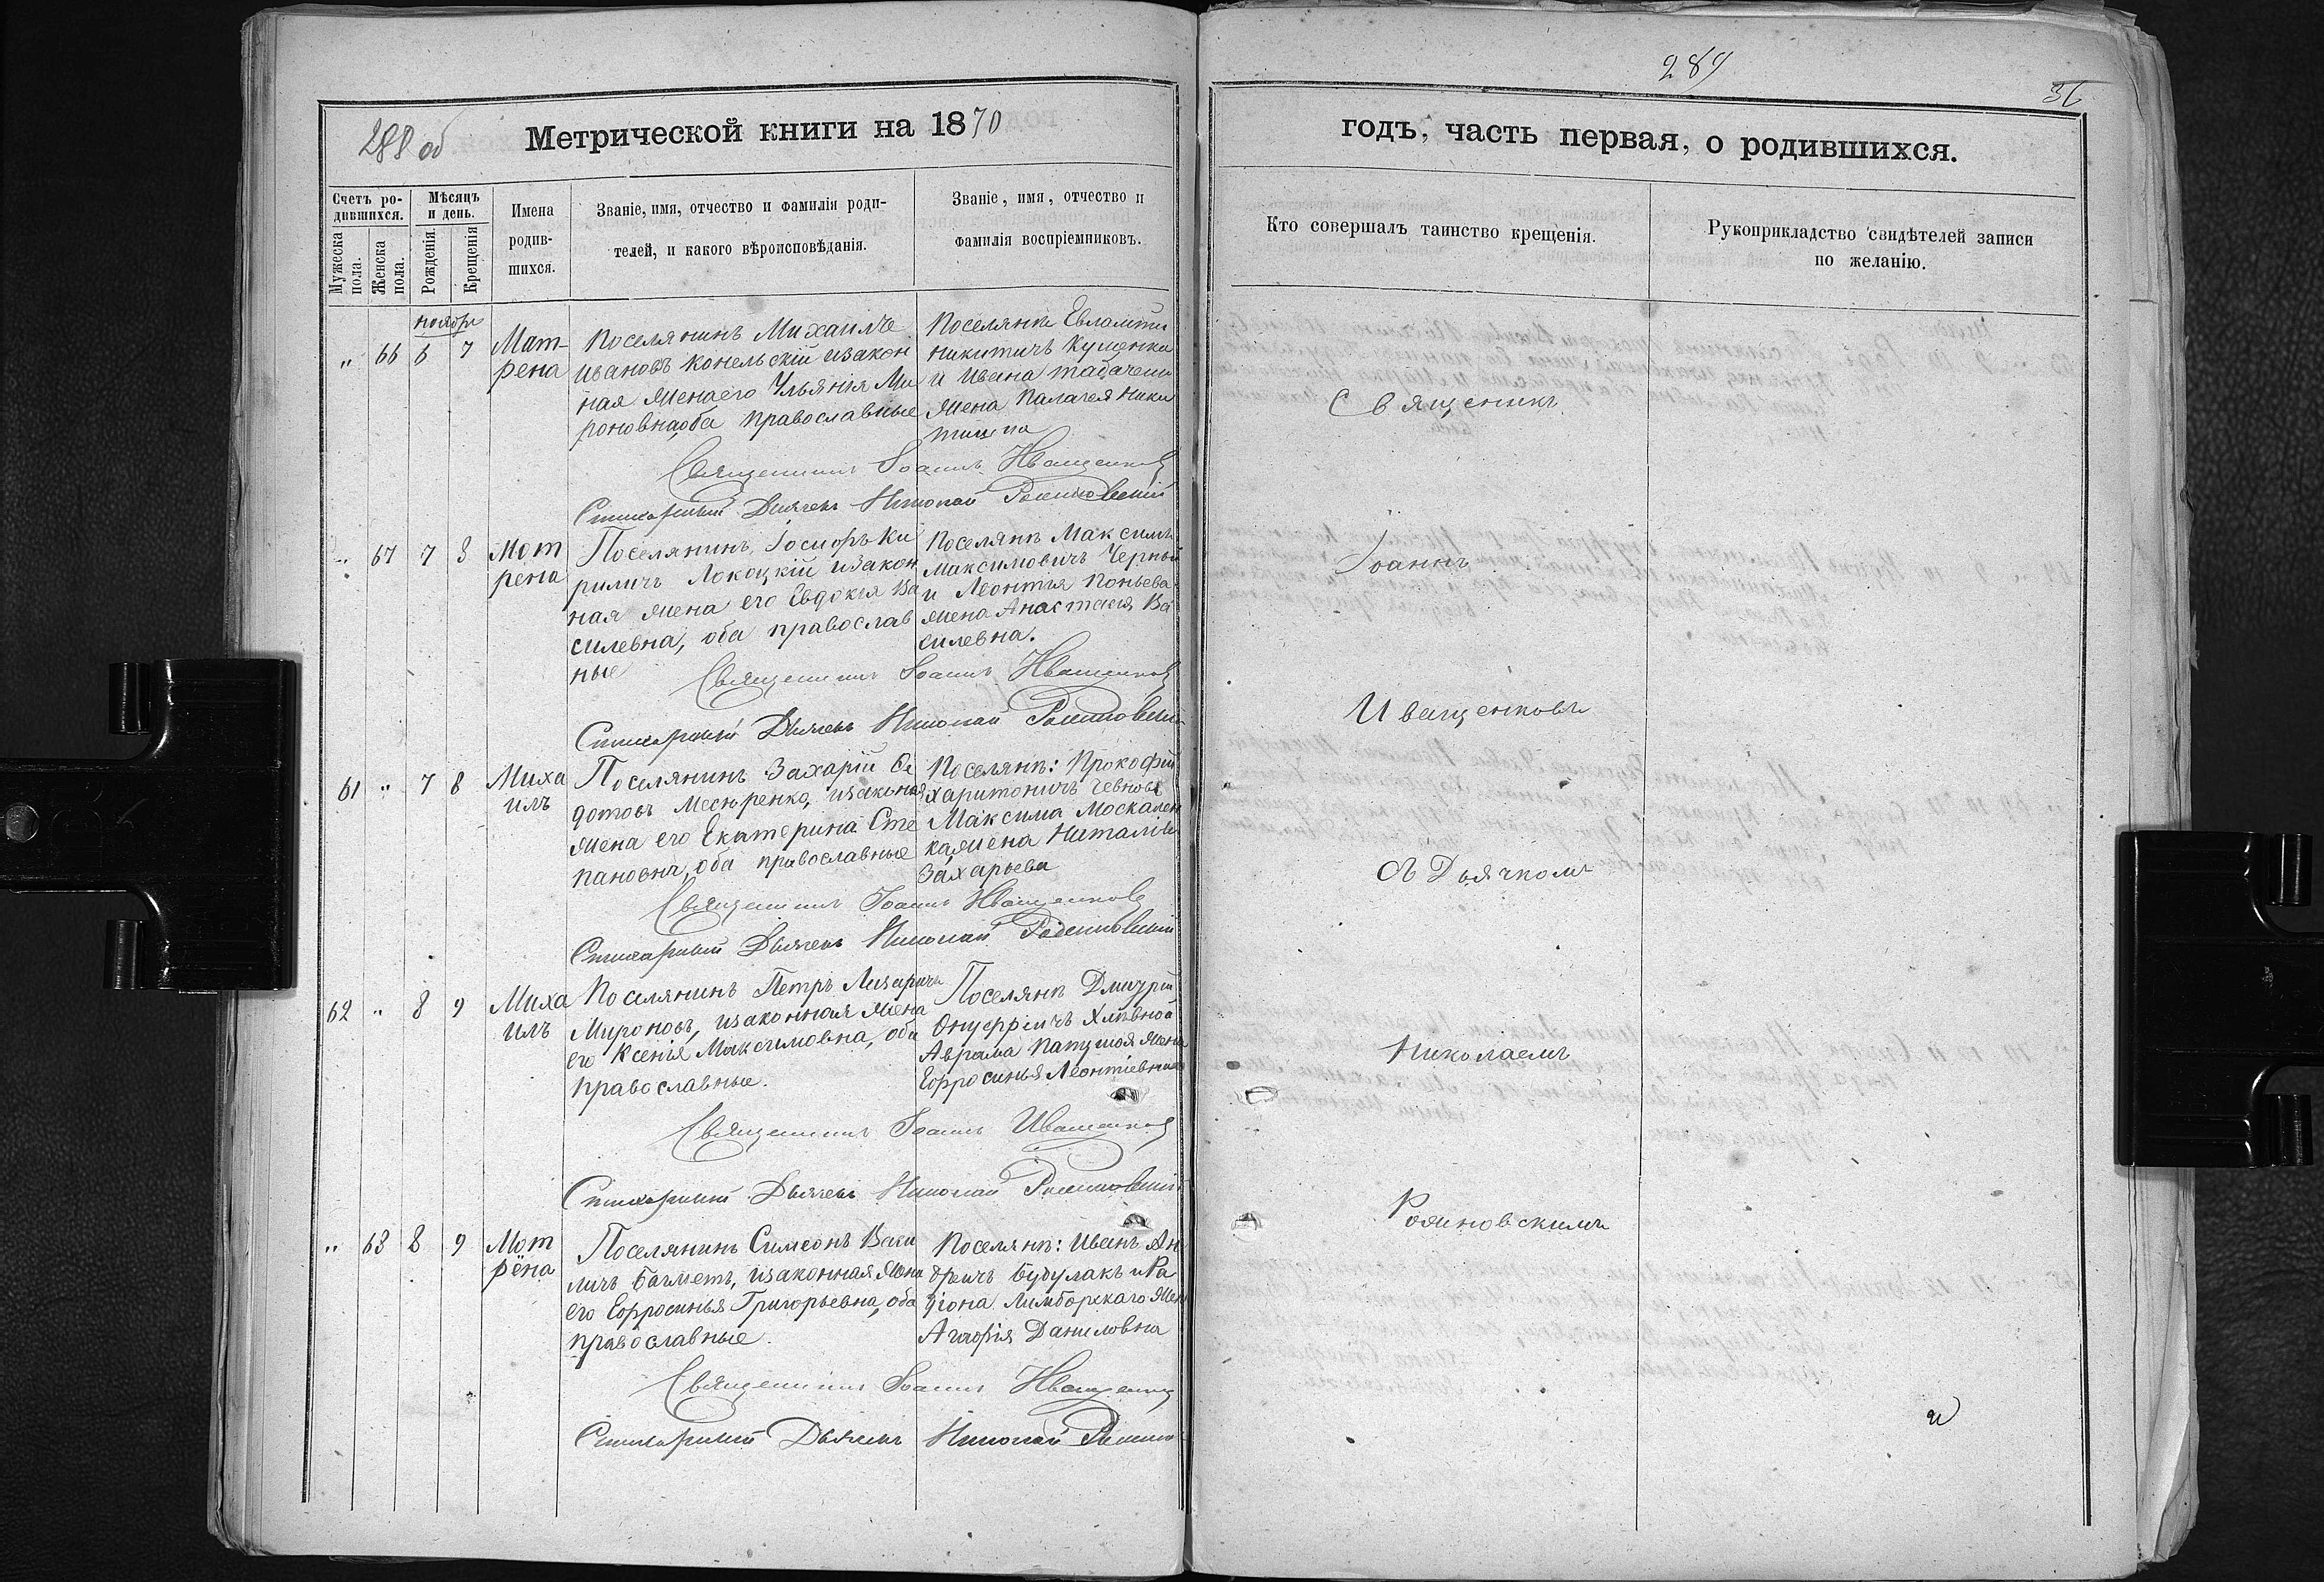 288 об
Метрической книги на 1870
Счетъ ро-
дившихся.
Мужеска
пола.
Женска
пола.
Мѣсяцъ
и день.
Рожденія.
Крещенія
Имена
родив-
шихся.
Званіе, имя, отчество и фамилія роди-
телей, и какого вѣроисповѣданія.
Званіе, имя, отчество и
фамилія воспріемниковъ.
ноября
„ 66 6 7
Мат-
рена
Поселянинъ Михаилъ
Ивановъ Конельскій изакон
ная жена его Ульянія Ми
роновна, оба православные
Никитичъ Куценки
и Ивана
жена Палагея Ники
Священникъ Іоаннъ Иващенковъ
Стихарный Дьячекъ Николай
„ 67 7 8
Мот
рена
Поселянинъ, Іосифъ Ки
риличъ Локоцкій изакон
ная жена его Евдокія Ва
силевна, оба православ
ные
Поселянъ Максимъ
Максимовичъ Черный
и Леонтія
жена Анастасія Ва
силевна.
Священникъ Іоаннъ Иващенковъ
Стихарный Дьячекъ Николай
61 „ 7 8
Миха
илъ
Поселянинъ Захарій Ѳе
дотовъ изаконая
жена его Екатерина Сте
пановна, оба православные
Поселянъ: Прокофій
Харитоничъ
Максима Москален
ка жена Наталія
Захарьева
Священникъ Іоаннъ Иващенковъ
Стихарный Дьячекъ Николай
62 „ 8 9
Миха
илъ
Поселянинъ Петръ Лазаричъ
Мироновъ, изаконная жена
его Ксенія Максимовна, оба
православные.
Поселянъ Дмитрій
Онуфріичъ Хлѣвной
Аврама жена
Ефросинья Леонтіевна
Священникъ Іоаннъ Иващенковъ
Стихарный Дьячекъ Николай
„ 68 8 9
Мот
рёна
Поселянинъ Симеонъ Васи
личъ Багметъ, изаконная жена
его Ефросинья Григорьевна, оба
православные.
Поселянъ: Иванъ Ан
дреичъ Будулакъ и Ра
діона Лимборскаго жен
Агафія Даниловна
Священникъ Іоаннъ
Стихарный Дьячекъ Николай
289
36
годъ, часть первая, о родившихся.
Кто совершалъ таинство крещенія.
Рукоприкладство свидѣтелей записи
по желанію.
Священикъ
Іоаннъ
Иващенковъ
съ Дьячкомъ
Николаемъ